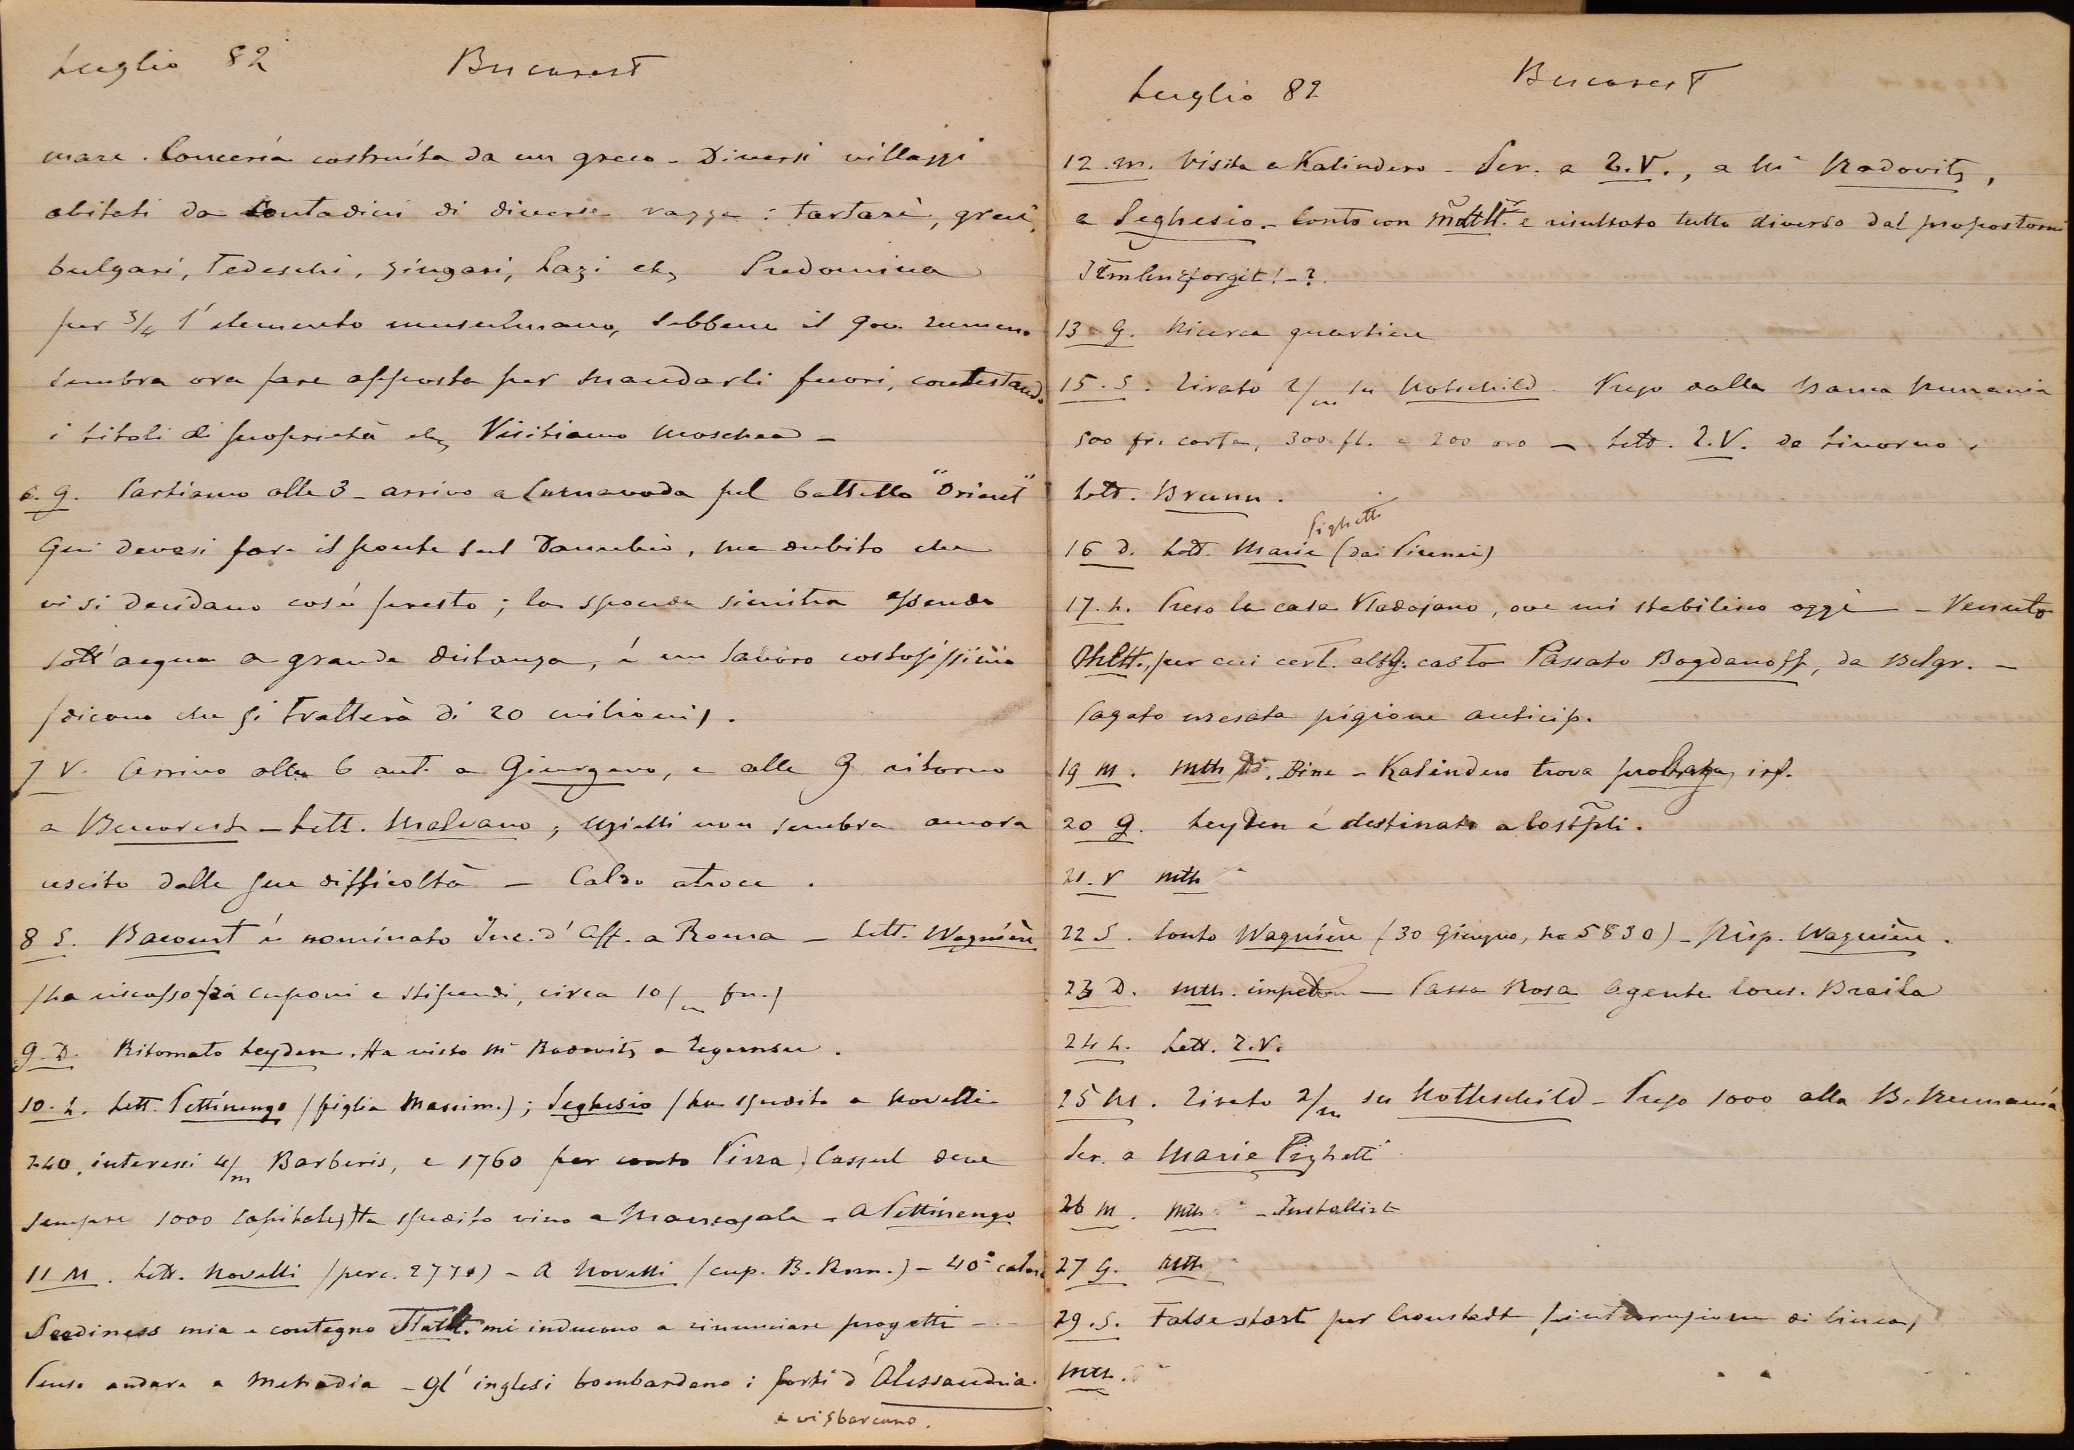 Luglio 82 Bucarest
mare. Conceria costruita da un greco - Diversi villaggi
abitati da contadini di diverse razze: tartari, greci,
bulgari, Tedeschi, zingari, Lazi etc. Predomina
per 3/4 l'elemento musulmano, sebbene il gov. rumeno
sembra ora fare apposta per mandarli fuori, contestando
i titoli di proprietà etc. Visitiamo moschea -
6. G. Partiamo alle 3 - arrivo a Cernavoda sul battello "Orient"
Qui devesi fare il ponte sul Danubio, ma dubito che
vi si decidano così presto; la sponda sinistra essendo
sott'acqua a grande distanza, è un lavoro costosissimo
(dicono che si tratterà di 20 milioni).
7 V. Arrivo alle 6 ant. a Giurgevo, e alle 9 ritorno
a Bucarest - Lett. Malvano; Uzielli non sembra ancora
uscito dalle sue difficoltà - Caldo atroce.
8 S. Bacourt è nominato Inc. d'Aff. a Roma - Lett. Wagnière
(ha riscosso già cuponi e stipendi, circa 10/m fr.)
9. D. Ritornato Leyden. Ha visto Mr Radovitz a Tegernsee.
10. L. Lett. Pettinengo (figlia Massim.); Seghesio (ha spedito a Novelli
240, interessi 4/m Barberis, e 1760 per conto Pizza) Cassul deve
sempre 1000 capitale) Ha spedito vino a - A Pettinengo
11 M. Lett. Novelli (perc. 2770) - A Novelli (cup. B. Rom.) - 40° calore
Seediness mia e contegno mi inducono a rinunciare progetti -
Penso andare a Mehadia - Gl'inglesi bombardano i forti d'Alessandria
e vi sbarcano.
Luglio 82 Bucarest
12. M. Visita a Kalindero - Scr. a Z.V., a Mr Radovitz,
a Seghesio. - Conto con e risultato tutto diverso dal propostomi
! - ?
13 G. Ricerca quartiere
15. S. Tirato 2/m su Rotschild. Preso dalla Banca Rumania
500 fr. carta, 300 fl. e 200 oro - Lett. Z.V. da Livorno.
Lett. Brunn.
16 D. Lett. Marie Pighetti (dai Pirenei)
17. L. Preso la casa Vladojano, ove mi stabilisco oggi - Venuto
per cui cert. Passato Bogdanoff, da Belgr. -
Pagato mesata pigione anticip.
19 M. Mth Dine - Kalindero trova
20 G. Leyden è destinato a Costpli.
21. V Mth
22 S. Conto Wagnière (30 Giugno, ho 5830) - Risp. Wagnière.
23 D. Mth. - Passa Rosa Agente Cons. Braila
24 L. Lett. Z.V.
25 M. Tirato 2/m su Rothschild - Preso 1000 alla B. Rumania
Scr. a Marie Pighetti
26 M. Mth -
27 G. Mth
29. S. False start per Cronstadt (interruzione di linea)
Mth.